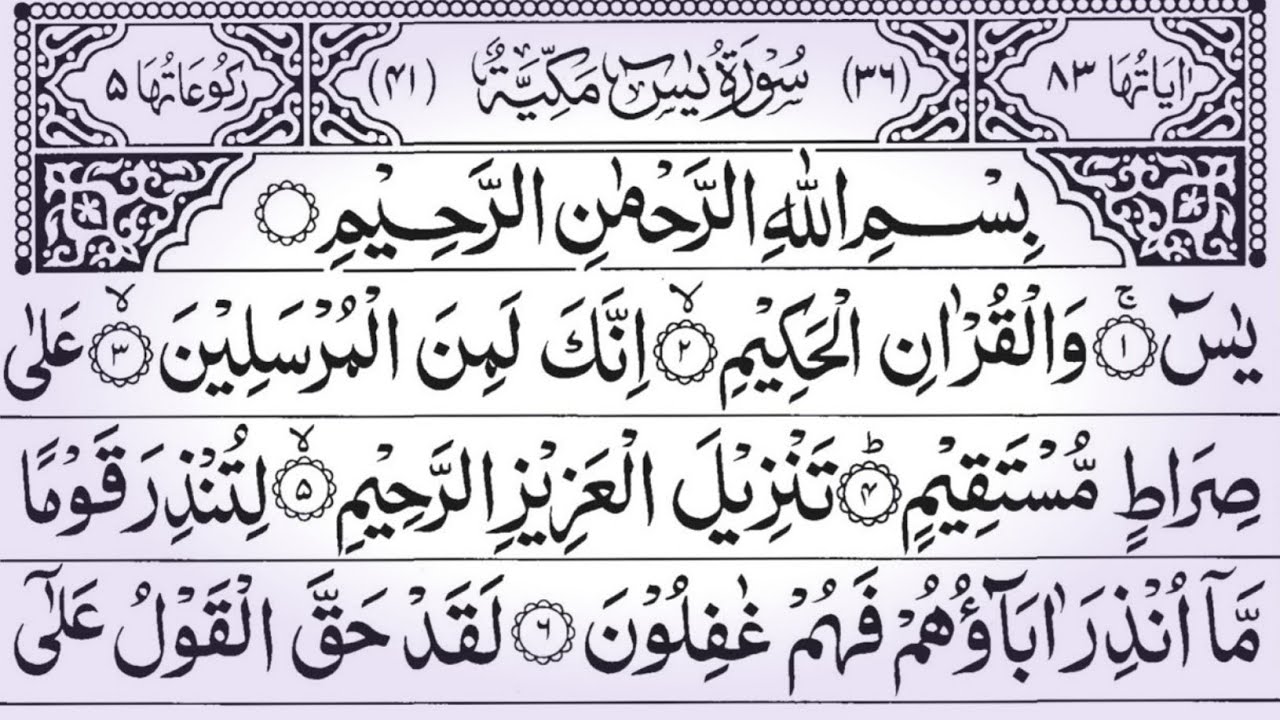 اٰيَاتُهَا ٨٣ (٣٦) سُوْرَةُ يٰسٓ مَكِّيَّةٌ (٤١) رُكُوْعَاتُهَا ٥
بِسْمِ اللّٰهِ الرَّحْمٰنِ الرَّحِيْمِ
يٰسٓ ۚ‏﴿۱﴾ وَالْقُرْاٰنِ الْحَكِيْمِ ۙ‏﴿۲﴾ اِنَّكَ لَمِنَ الْمُرْسَلِيْنَ ۙ‏﴿۳﴾ عَلٰى
صِرَاطٍ مُّسْتَقِيْمٍ ؕ‏﴿۴﴾ تَنْزِيْلَ الْعَزِيْزِ الرَّحِيْمِ ۙ‏﴿۵﴾ لِتُنْذِرَ قَوْمًا
مَّاۤ اُنْذِرَ اٰبَآؤُهُمْ فَهُمْ غٰفِلُوْنَ ‏﴿۶﴾ لَقَدْ حَقَّ الْقَوْلُ عَلٰٓى